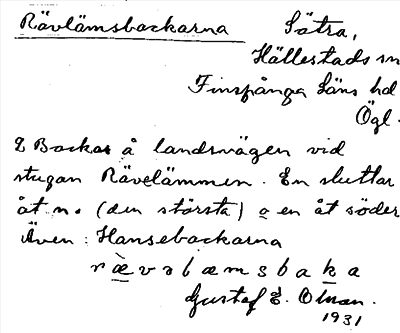 Rävlämsbackarna
Sätra,
Hällestads sn
Finspånga läns hd
Ögl.
2 Backar å landsvägen vid
stugan Rävelämmen. En sluttar
åt n. (den största) o en åt söder
Även: Hansebackarna
rævəlæmsbaka
Gustaf E.
1931